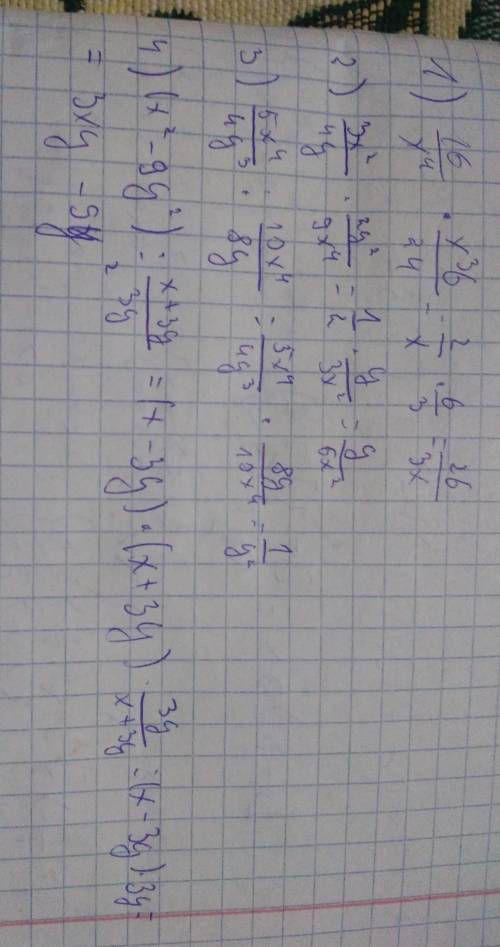 1) 16/x⁴ · x³b/24 = 2/x · b/3 = 2b/3x
2) 3x²/4y · 2y²/9x⁴ = 1/2 · y/3x² = y/6x²
3) 5x⁴/4y³ : 10x⁴/8y = 5x⁴/4y³ · 8y/10x⁴ = 1/y²
4) (x² - 9y²) : x+3y/3y = (x - 3y) · (x + 3y) · 3y/x+3y = (x - 3y) · 3y =
= 3xy - 9y²